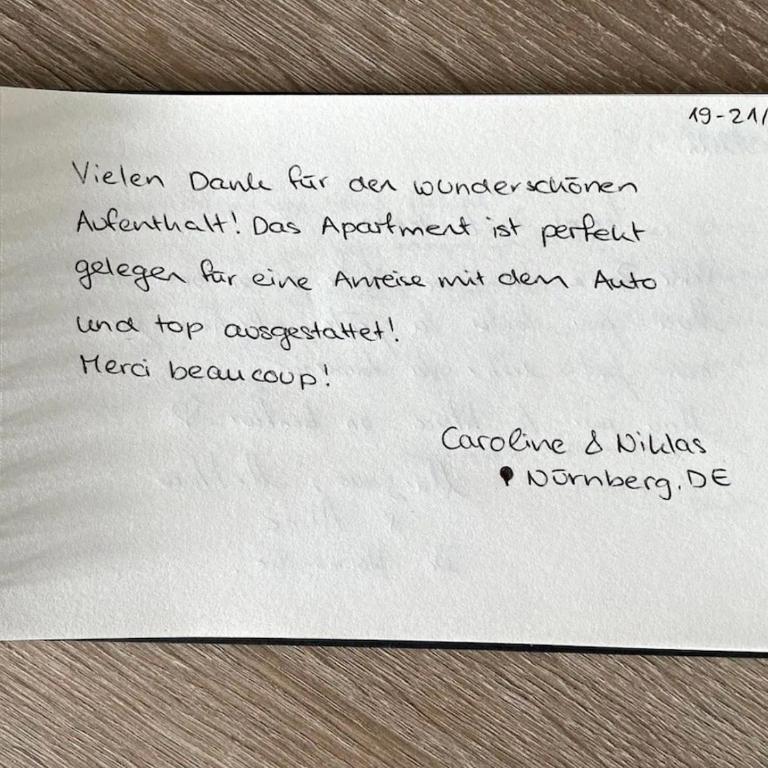 19-21/
Vielen Dank für den wunderschönen
Aufenthalt! Das Apartment ist perfekt
gelegen für eine Anreise mit dem Auto
und top ausgestattet!
Merci beaucoup!
Caroline & Niklas
Nürnberg, DE